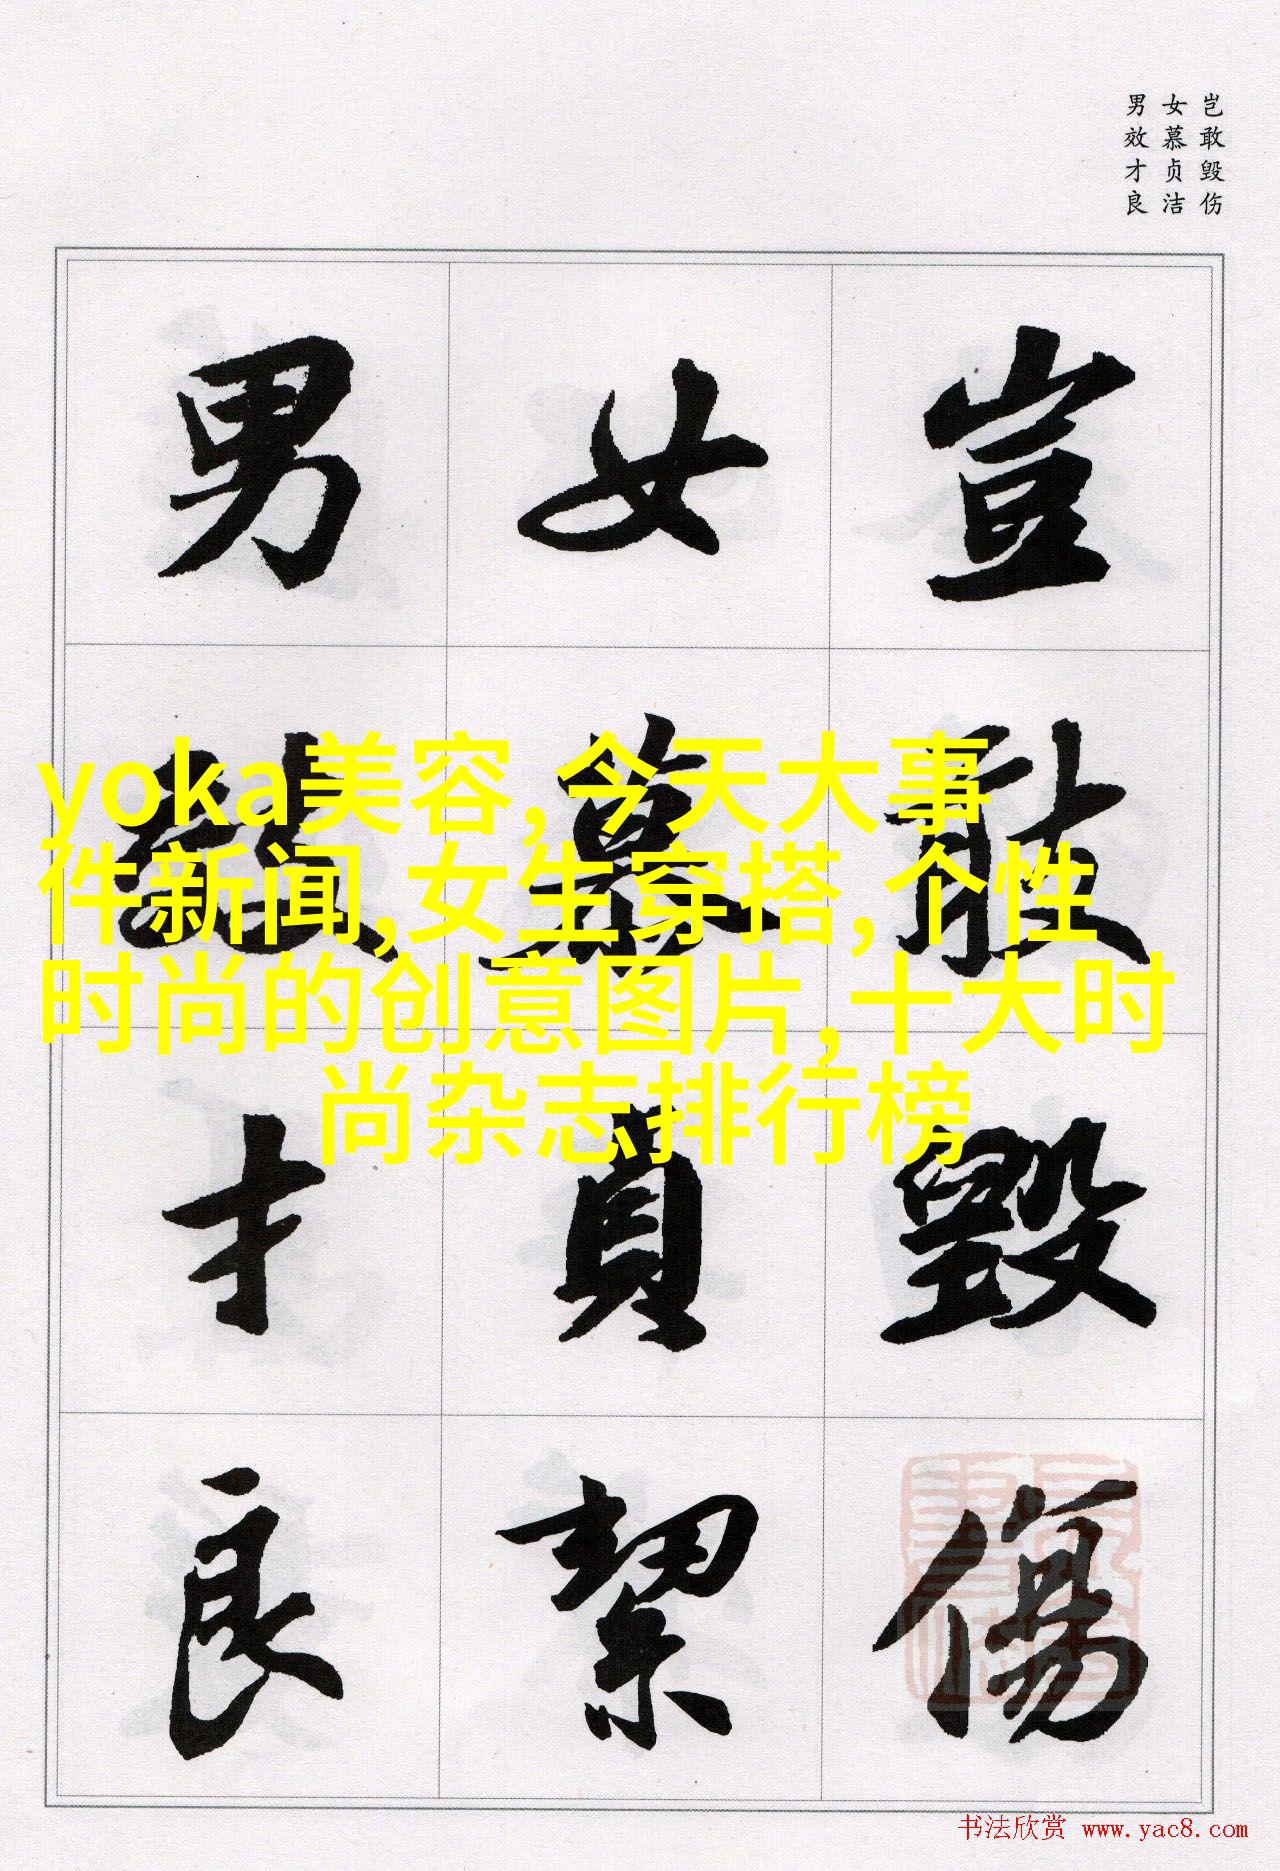 岂敢毁伤
女慕贞洁
男效才良
豈敢毀傷
女慕貞絜
男效才良
yoka美容,今天大事
件新闻,女生穿搭,个性
时尚的创意图片,十大时
尚杂志排行榜
书法欣赏 www.yac8.com